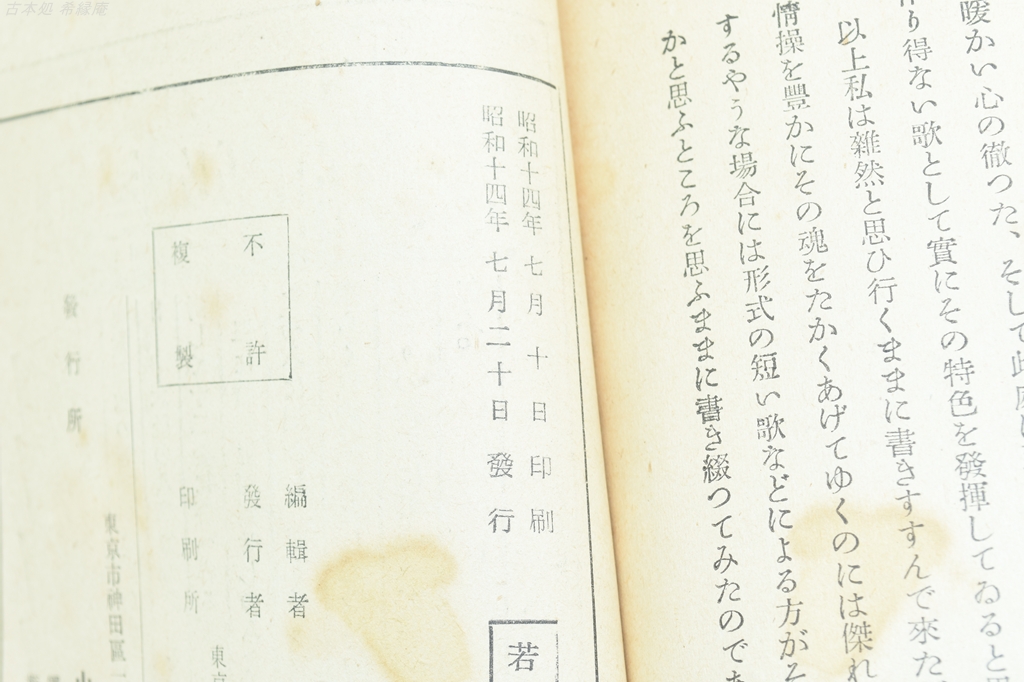 古本処 希縁庵
暖かい心の徹つた、そして此
り得ない歌として實にその特色を發揮してゐると思
以上私は雜然と思ひ行くままに書きすすんで來た
情操を豐かにその魂をたかくあげてゆくのには傑れ
するやうな場合には形式の短い歌などによる方がそ
かと思ふところを思ふままに書き綴つてみたのであ
昭和十四年七月十日印刷
昭和十四年七月二十日發行
若
不許
複製
編輯者
發行者
印刷所
東京
發行所
東京市神田區